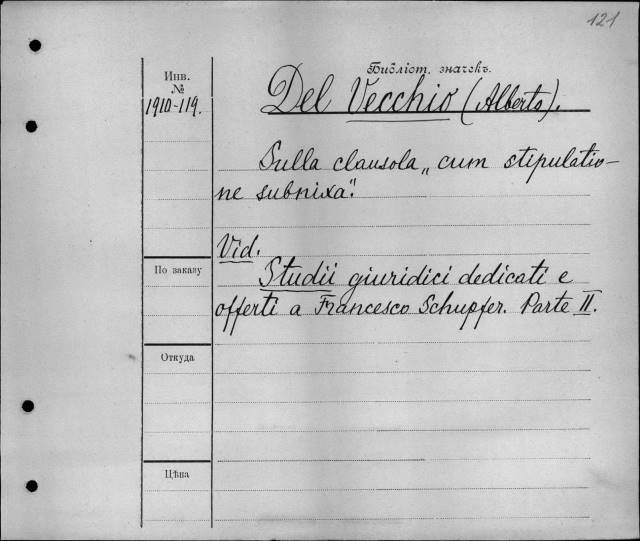 121
Библіот. значекъ.
Инв.
№
1910-119.
Del Vecchio (Alberto).
Sulla clausola „cum stipulatio-
ne subnixa".
Vid.
Studii giuridici dedicati e
offerti a Francesco Schupfer. Parte II.
По заказу
Откуда
Цѣна